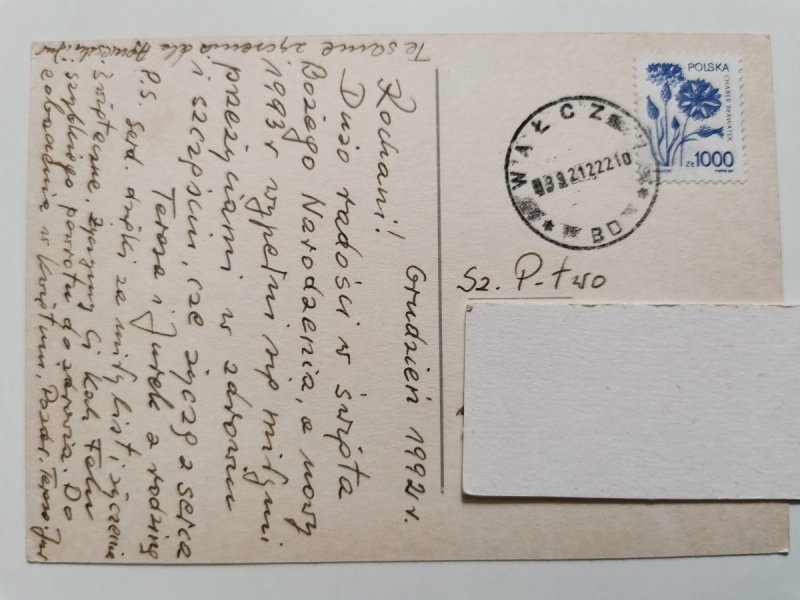 Grudzień 1992 r.
Kochani!
Dużo radości w święta
Bożego Narodzenia, a nowy
1993 r wypełni się miłymi
przeżyciami w zdrowiu
i szczęściu, cze życzą z serca
Teresa i Jurek z rodziną
P.S. Serd. dzięki za miły list, życzenia
świąteczne. Życzymy Ci koch.
szybkiego powrotu do zdrowia. Do
zobaczenia w Pozdr. Teresa, Jur
Te same życzenia dla
POLSKA
CHABER BŁAWATEK
ZŁ 1000
WAŁCZ 1
211222210
BD
Sz. P-two